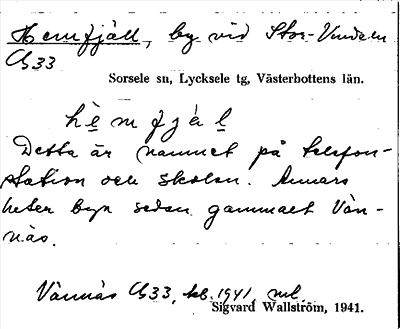 Hemfjäll, by vid Stor-Vindeln
G33
Sorsele sn, Lycksele tg, Västerbottens län.
hè̱mfjáḻ
Detta är namnet på telefon-
station och skolan. Annars
heter byn sedan gammalt Vän-
näs.
Vännäs G33, tab. 1941, ml.
Sigvard Wallström, 1941.